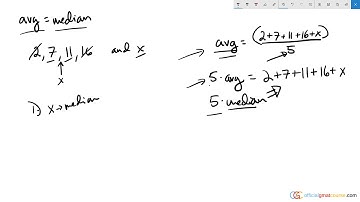 avg = median
2, 7, 11, 16 and x
x
1) x → median
avg = (2+7+11+16+x)
5
5 · avg = 2+7+11+16+x
5 · median
officialgmatcourse.com